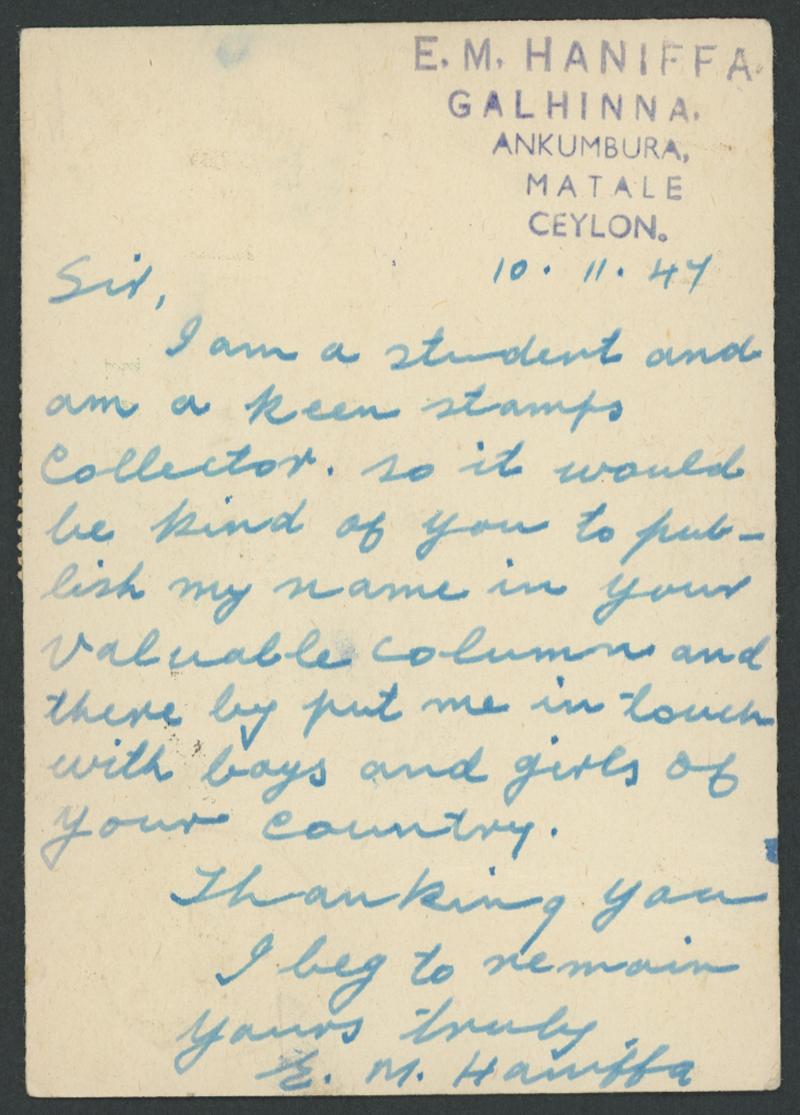 E. M. HANIFFA.
GALHINNA.
ANKUMBURA,
MATALE
CEYLON.
10. 11. 47
Sir,
I am a student and
am a keen stamps
Collector. so it would
be kind of you to pub-
lish my name in your
valuable column and
there by put me in touch
with boys and girls of
your country.
Thanking you
I beg to remain
yours truly
E. M. Haniffa